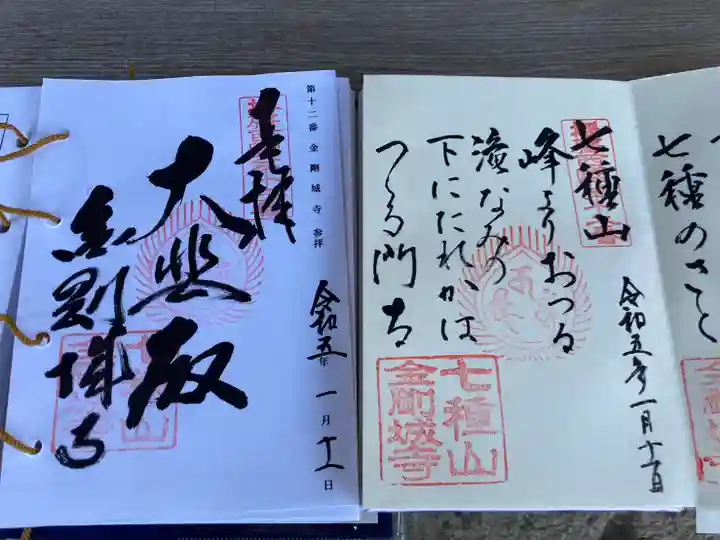 第十二番 金剛城寺 参拝
奉拝
大悲殿
金剛城寺
令和五年 一月十一日
七種山
峰よりおつる
滝なみの
下にたれかは
つく
令和五年一月十一日
七種山
金剛城寺
七種のさと